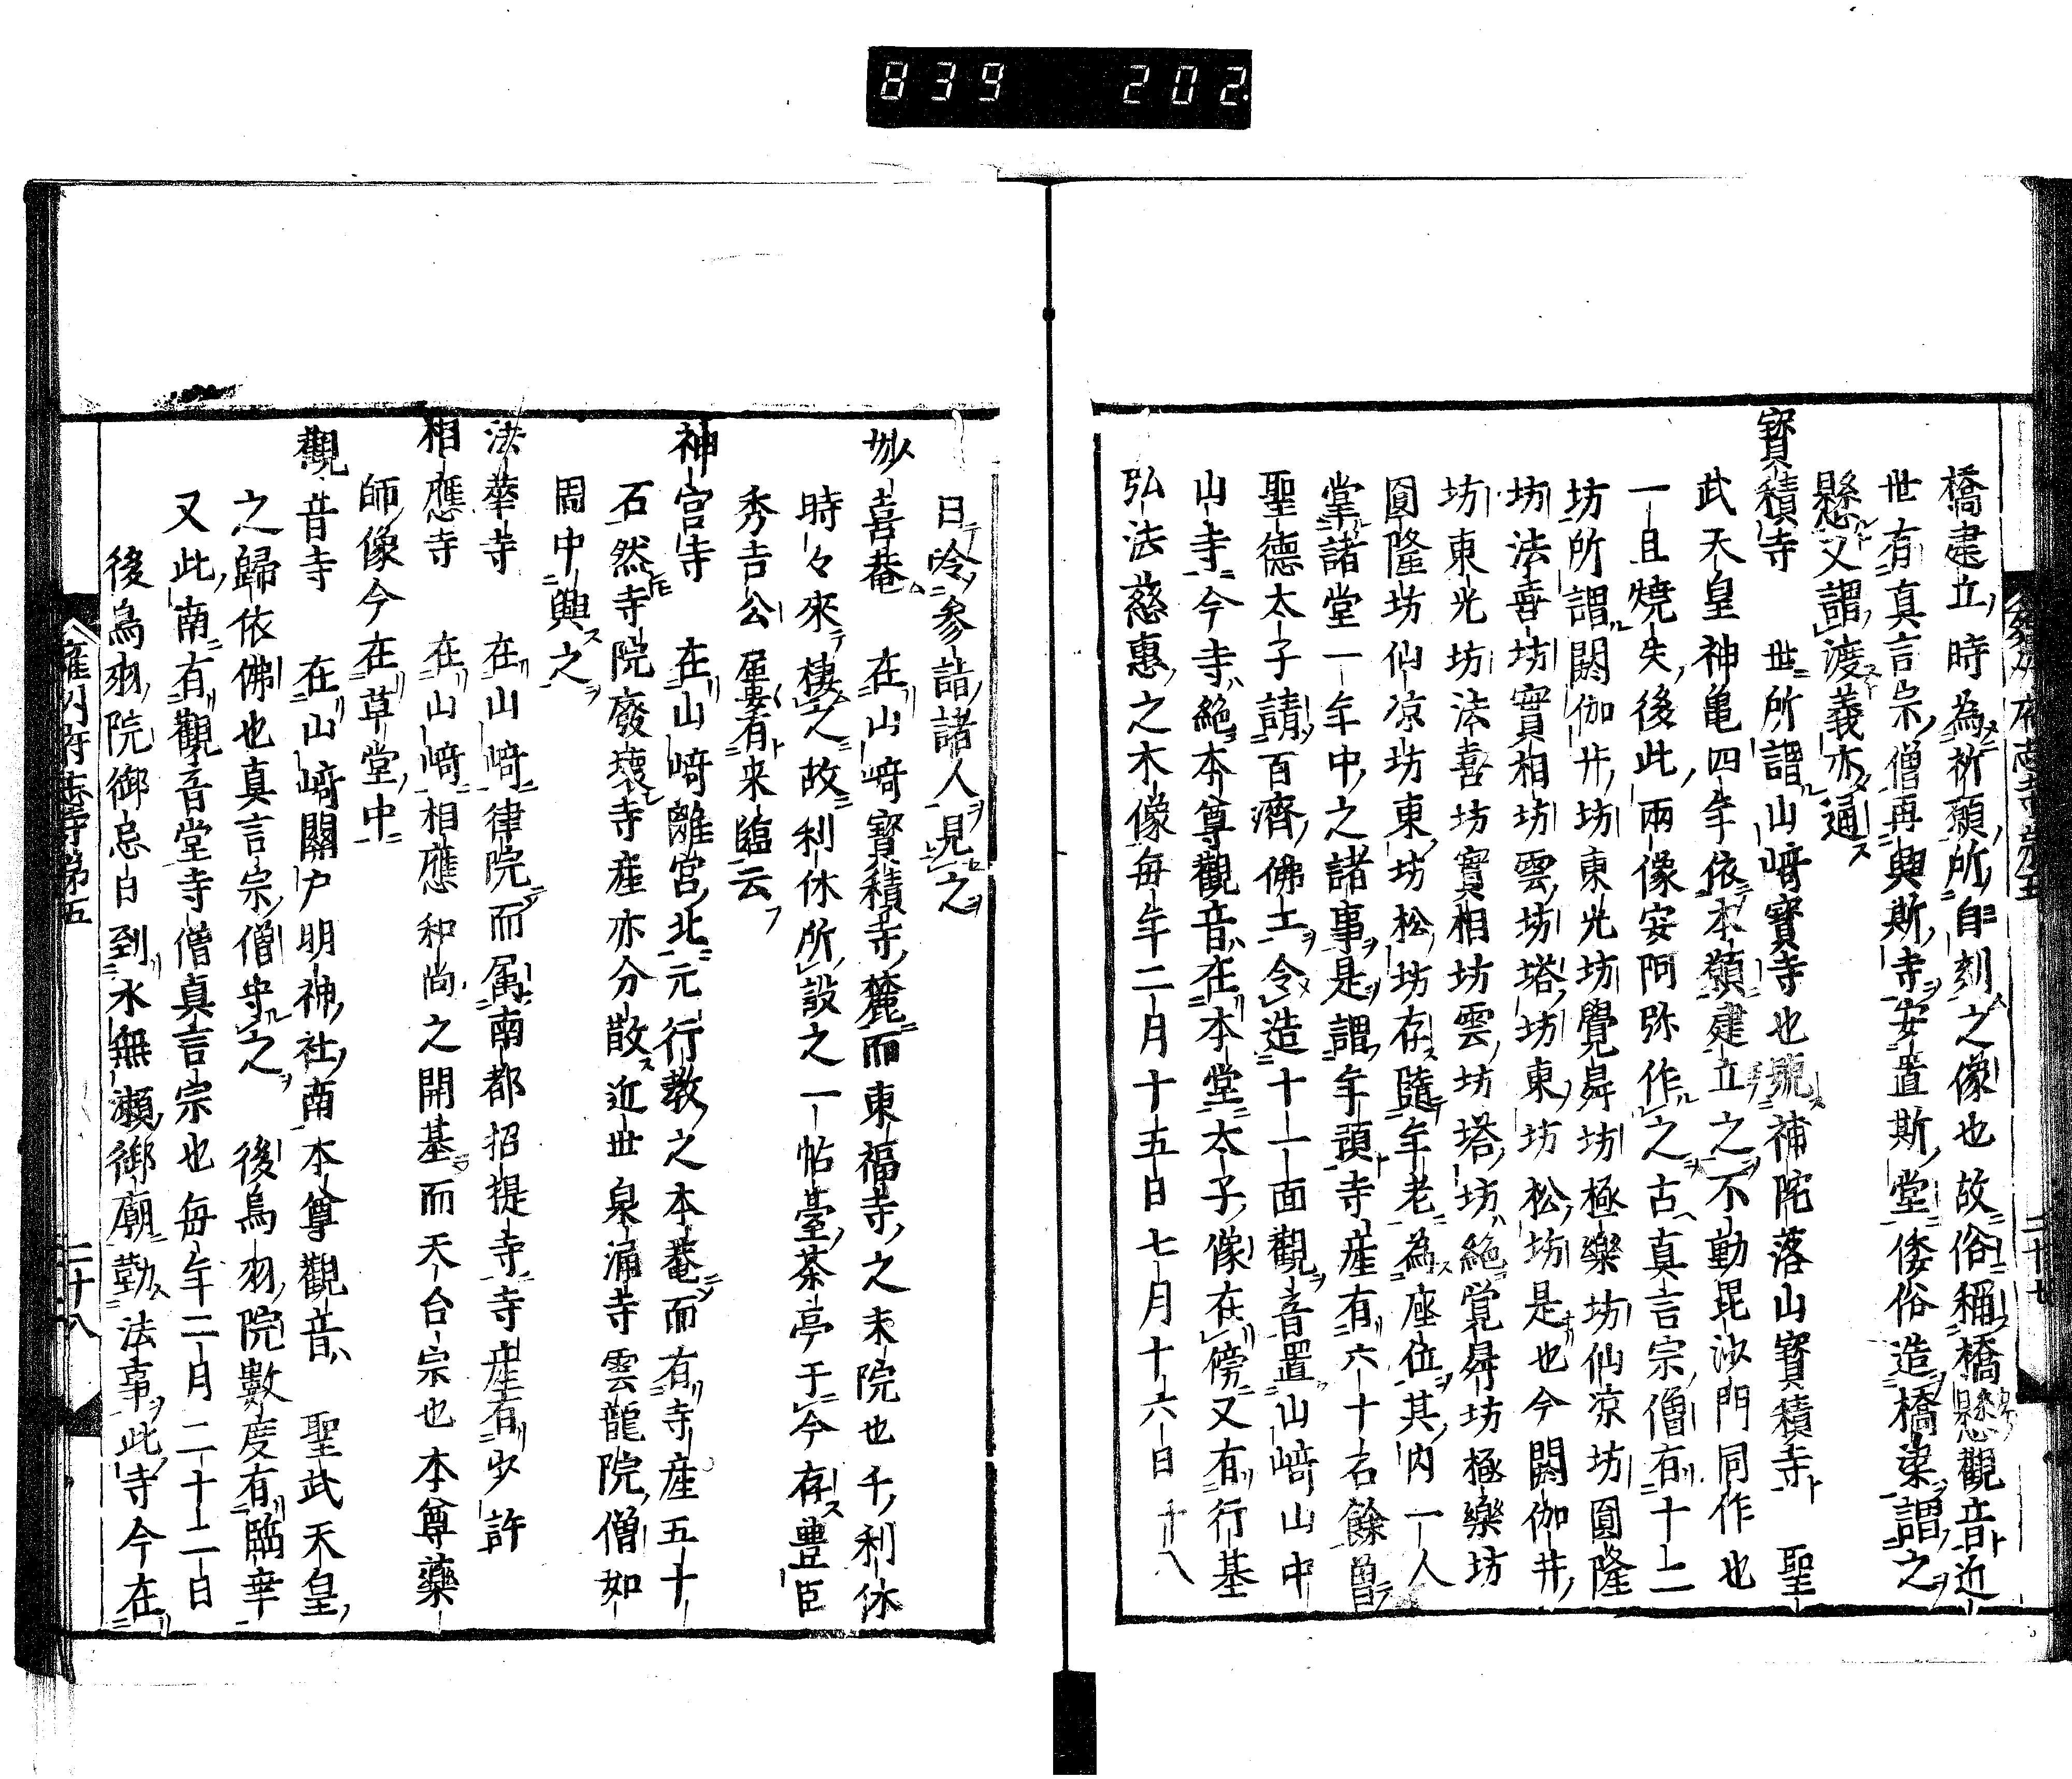 839 202
橋建立時為祈願所自刻之像也故俗稱橋懸觀音近
世有真言宗僧再興斯寺安置斯堂倭俗造橋梁謂之
懸又謂渡義亦通
寶積寺 世所謂山﨑寶寺也號補陀落山寶積寺 聖
武天皇神亀四年依本願建立之不動毘沙門同作也
一旦燒失後此兩像安阿弥作之古真言宗僧有十二
坊所謂閼伽井坊東光坊覺舜坊極樂坊仙凉坊圓隆
坊法喜坊實相坊雲坊塔坊東坊松坊是也今閼伽井
坊東光坊法喜坊實相坊雲坊塔坊絶覚舜坊極樂坊
圓隆坊仙凉坊東坊松坊存隨年老為座位其內一人
掌諸堂一年中之諸事是謂年預寺産有六十石餘曽
聖德太子請百濟佛工令造十一面觀音置山﨑山中
山寺今寺絶本尊觀音在本堂太子像在傍又有行基
弘法慈惠之木像毎年二月十五日七月十六日十八
日唥参詣諸人見之
妙喜菴 在山﨑寶積寺麓而東福寺之末院也千利休
時々來棲之故利休所設之一帖臺茶亭于今存豊臣
秀吉公屢有来臨云
神宮寺 在山﨑離宮北元行教之本菴而有寺産五十
石然寺院廢壞寺産亦分散近世泉涌寺雲龍院僧如
周中興之
法華寺 在山﨑律院而属南都招提寺寺産有少許
相應寺 在山﨑相應和尚之開基而天台宗也本尊藥
師像今在草堂中
觀音寺 在山﨑關戸明神社南本尊觀音 聖武天皇
之歸依佛也真言宗僧守之 後鳥羽院數度有臨幸
又此南有觀音堂寺僧真言宗也毎年二月二十二日
後鳥羽院御忌日到水無瀬御廟勤法事此寺今在
雍州府志寺第五 二十七
雍州府志寺第五 二十八